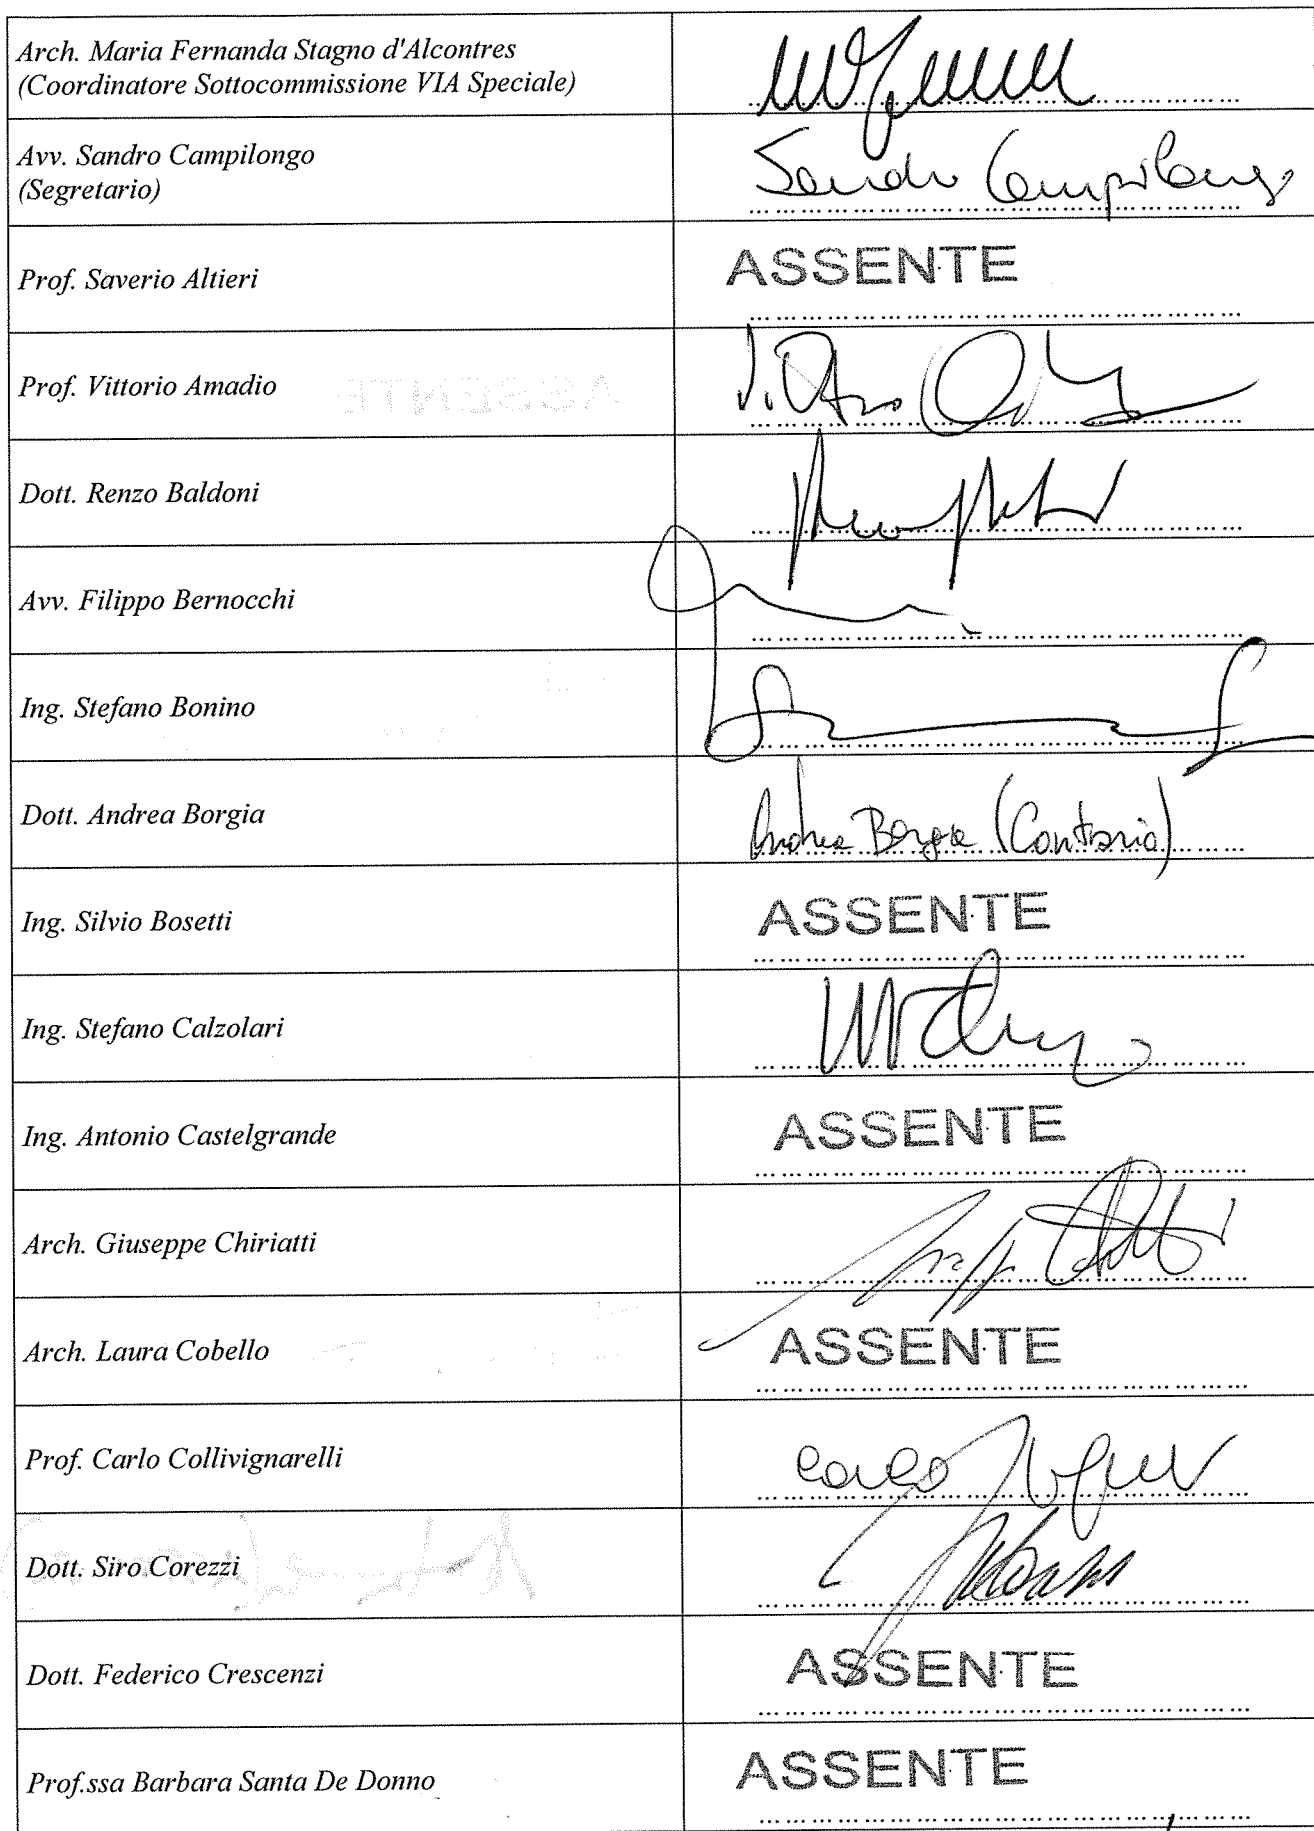 Arch. Maria Fernanda Stagno d'Alcontres
(Coordinatore Sottocommissione VIA Speciale)
Avv. Sandro Campilongo
(Segretario)
Sandro Campilongo
Prof. Saverio Altieri
ASSENTE
Prof. Vittorio Amadio
ASSENTE
Dott. Renzo Baldoni
Avv. Filippo Bernocchi
Ing. Stefano Bonino
Dott. Andrea Borgia
Andrea Borgia (Contrario)
Ing. Silvio Bosetti
ASSENTE
Ing. Stefano Calzolari
Ing. Antonio Castelgrande
ASSENTE
Arch. Giuseppe Chiriatti
Arch. Laura Cobello
ASSENTE
Prof. Carlo Collivignarelli
Carlo
Dott. Siro Corezzi
Dott. Federico Crescenzi
ASSENTE
Prof.ssa Barbara Santa De Donno
ASSENTE